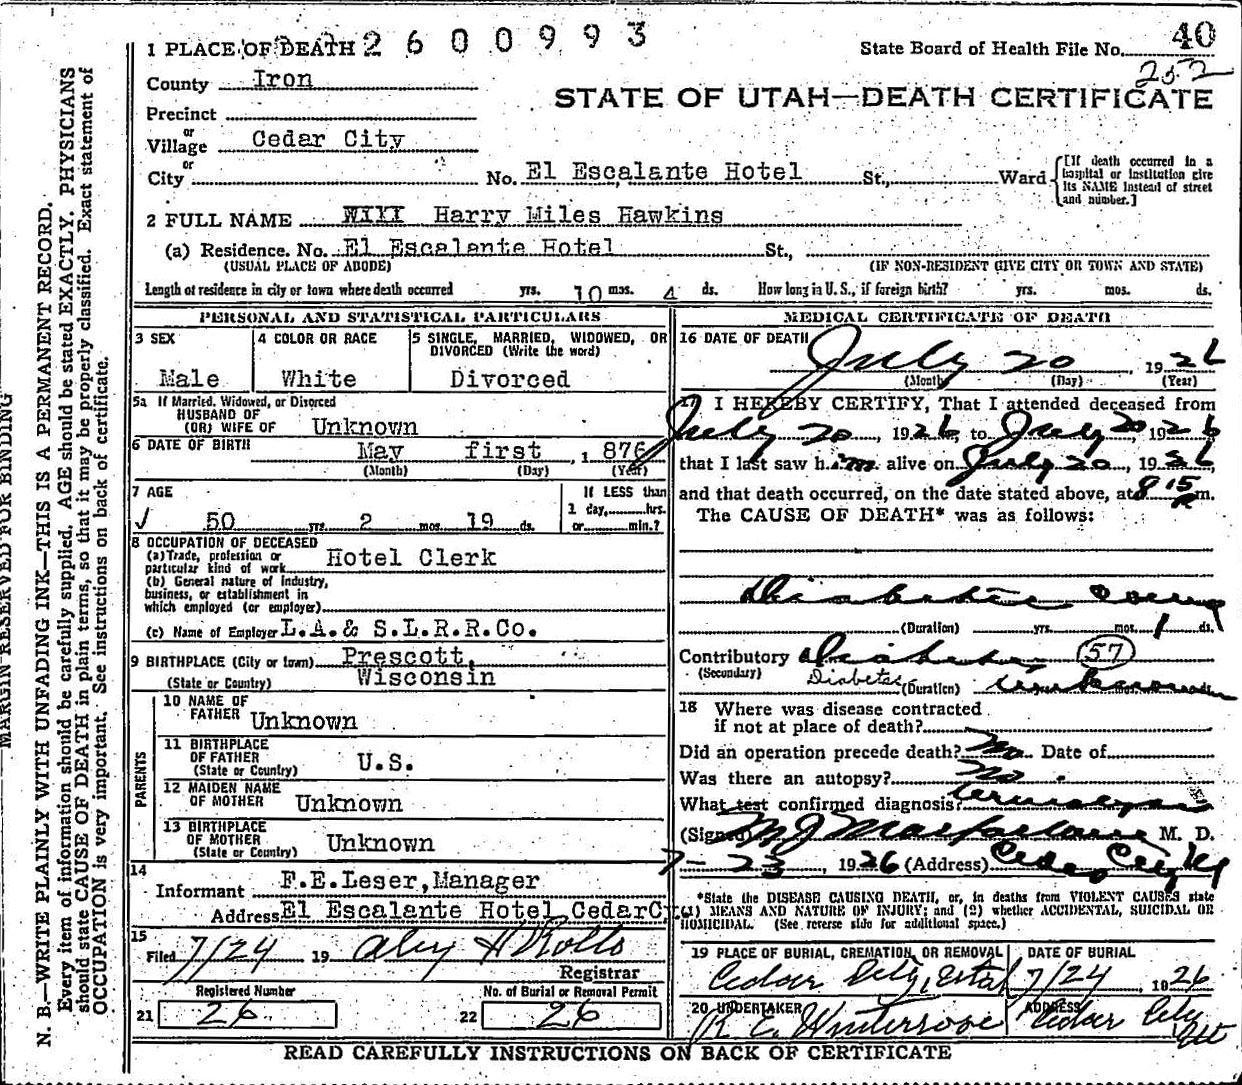 1 PLACE OF DEATH 2600993
State Board of Health File No. 40
252
County Iron
STATE OF UTAH—DEATH CERTIFICATE
Precinct
or
Village Cedar City
or
City No. El Escalante Hotel St., Ward
[If death occurred in a hospital or institution give its NAME instead of street and number.]
2 FULL NAME Harry Miles Hawkins
(a) Residence. No. El Escalante Hotel St.,
(USUAL PLACE OF ABODE) (IF NON-RESIDENT GIVE CITY OR TOWN AND STATE)
Length of residence in city or town where death occurred yrs. 10 mos. 4 ds. How long in U. S., if foreign birth? yrs. mos. ds.
PERSONAL AND STATISTICAL PARTICULARS
3 SEX
Male
4 COLOR OR RACE
White
5 SINGLE, MARRIED, WIDOWED, OR
DIVORCED (Write the word)
Divorced
5a If Married, Widowed, or Divorced
HUSBAND OF
(OR) WIFE OF Unknown
6 DATE OF BIRTH May first, 1876
(Month) (Day) (Year)
7 AGE
50 yrs. 2 mos. 19 ds.
If LESS than
1 day, hrs.
or min.?
8 OCCUPATION OF DECEASED
(a) Trade, profession or
particular kind of work Hotel Clerk
(b) General nature of Industry,
business, or establishment in
which employed (or employer)
(c) Name of Employer L.A.& S.L.R.R.Co.
9 BIRTHPLACE (City or town) Prescott,
(State or Country) Wisconsin
PARENTS
10 NAME OF
FATHER Unknown
11 BIRTHPLACE
OF FATHER
(State or Country) U.S.
12 MAIDEN NAME
OF MOTHER Unknown
13 BIRTHPLACE
OF MOTHER
(State or Country) Unknown
14
Informant F.E.Leser,Manager
Address El Escalante Hotel CedarC
15
Filed 7/24 19
Registrar
Registered Number
21 26
No. of Burial or Removal Permit
22 26
MEDICAL CERTIFICATE OF DEATH
16 DATE OF DEATH July 20, 1926
(Month) (Day) (Year)
17 I HEREBY CERTIFY, That I attended deceased from
July 20, 1926, to July 20, 1926
that I last saw him alive on July 20, 1926
and that death occurred, on the date stated above, at 8 15 P m.
The CAUSE OF DEATH* was as follows:
Diabetic coma
(Duration) yrs. mos. 1 ds.
Contributory Diabetes 57
(Secondary) Diabetes (Duration) unknown
18 Where was disease contracted
if not at place of death?
Did an operation precede death? No Date of
Was there an autopsy? No
What test confirmed diagnosis? urinalysis
(Signed) M J Macfarlane M. D.
7-23, 1926 (Address) Cedar City Ut
*State the DISEASE CAUSING DEATH, or, in deaths from VIOLENT CAUSES state
(1) MEANS AND NATURE OF INJURY; and (2) whether ACCIDENTAL, SUICIDAL OR
HOMICIDAL. (See reverse side for additional space.)
19 PLACE OF BURIAL, CREMATION, OR REMOVAL
Cedar City, Utah
DATE OF BURIAL
7/24, 1926
20 UNDERTAKER
ADDRESS
Cedar City
Ut
READ CAREFULLY INSTRUCTIONS ON BACK OF CERTIFICATE
MARGIN RESERVED FOR BINDING
N. B.—WRITE PLAINLY WITH UNFADING INK—THIS IS A PERMANENT RECORD.
Every item of information should be carefully supplied. AGE should be stated EXACTLY. PHYSICIANS
should state CAUSE OF DEATH in plain terms, so that it may be properly classified. Exact statement of
OCCUPATION is very important. See instructions on back of certificate.